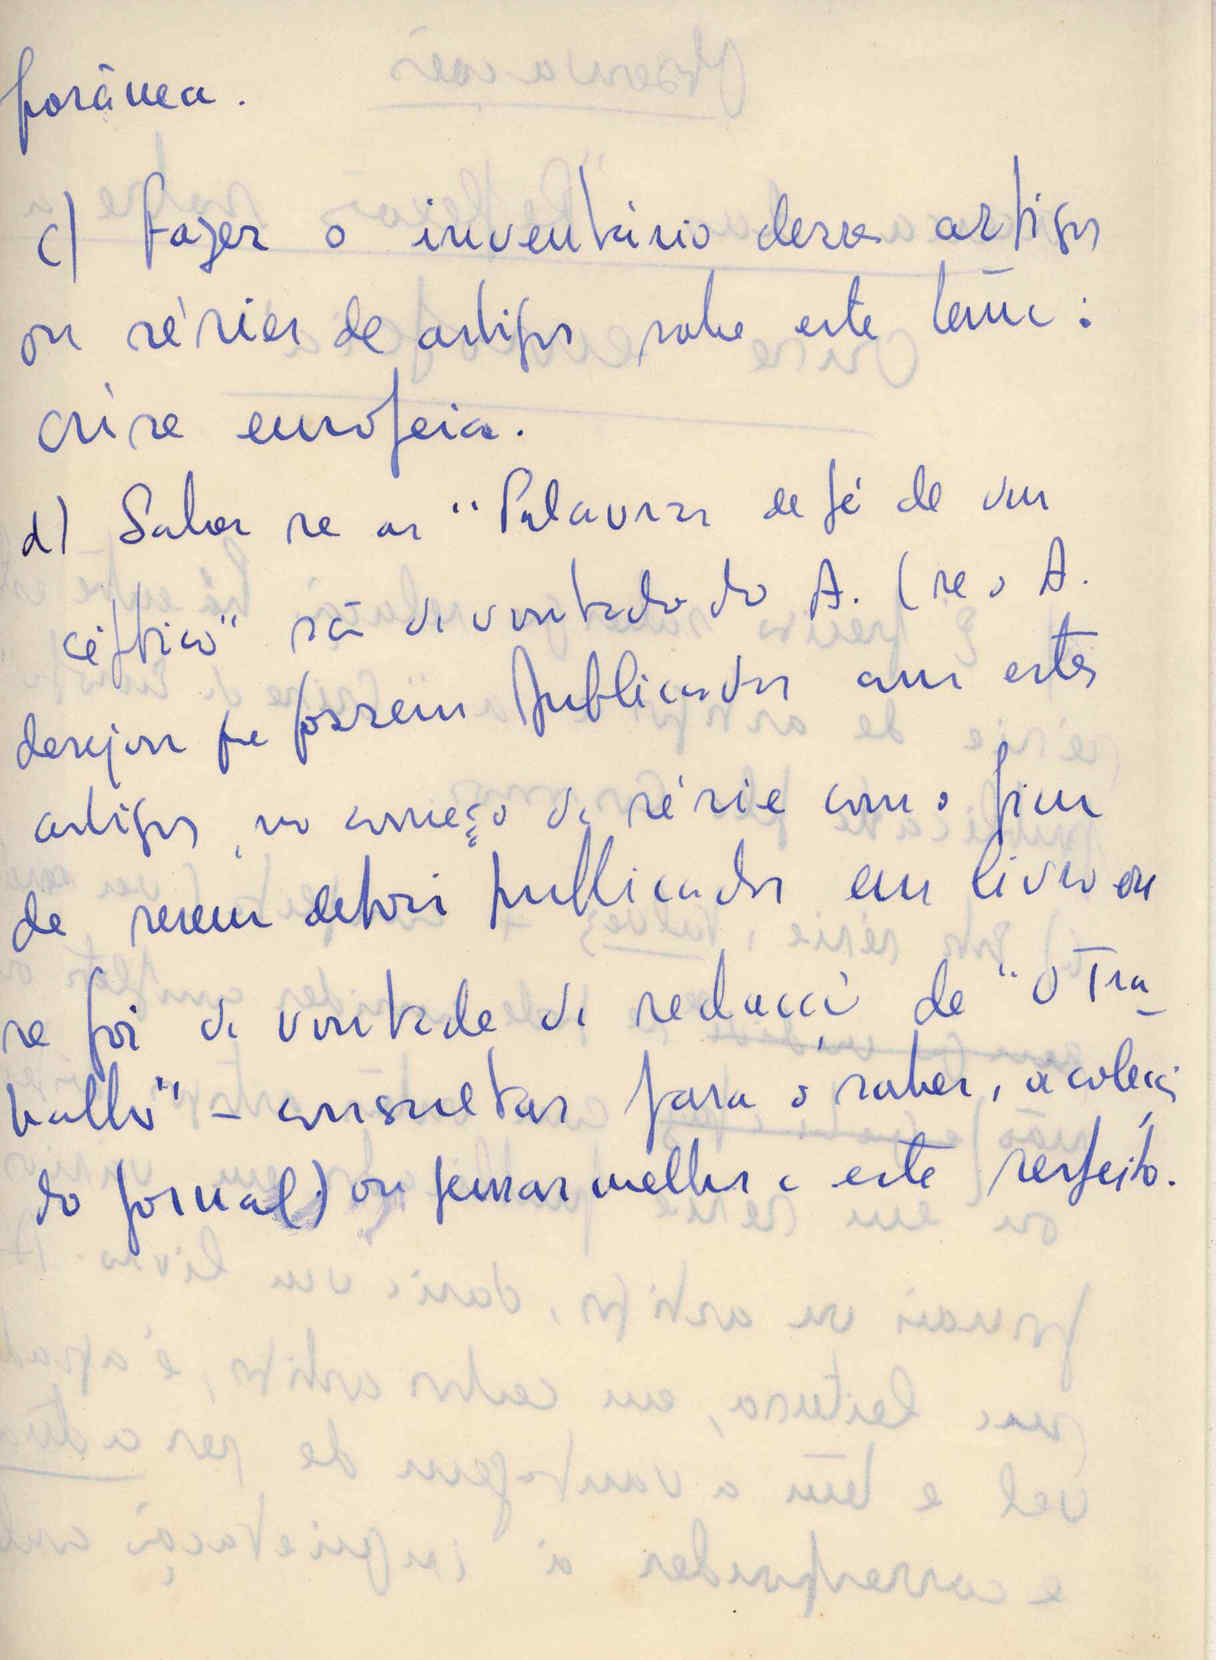 porânea.
c) Fazer o inventário desses artigos
ou séries de artigos sobre este tema:
crise europeia.
d) Saber se as "Palavras de fé de um
céptico" são da vontade do A. (se o A.
desejou que fossem publicadas com estes
artigos, no começo da série com o fim
de serem depois publicados em livro ou
se foi da vontade da redacção de "O Tra-
balho" – consultar para o saber, a colecção
do jornal) ou pensar melhor a este respeito.